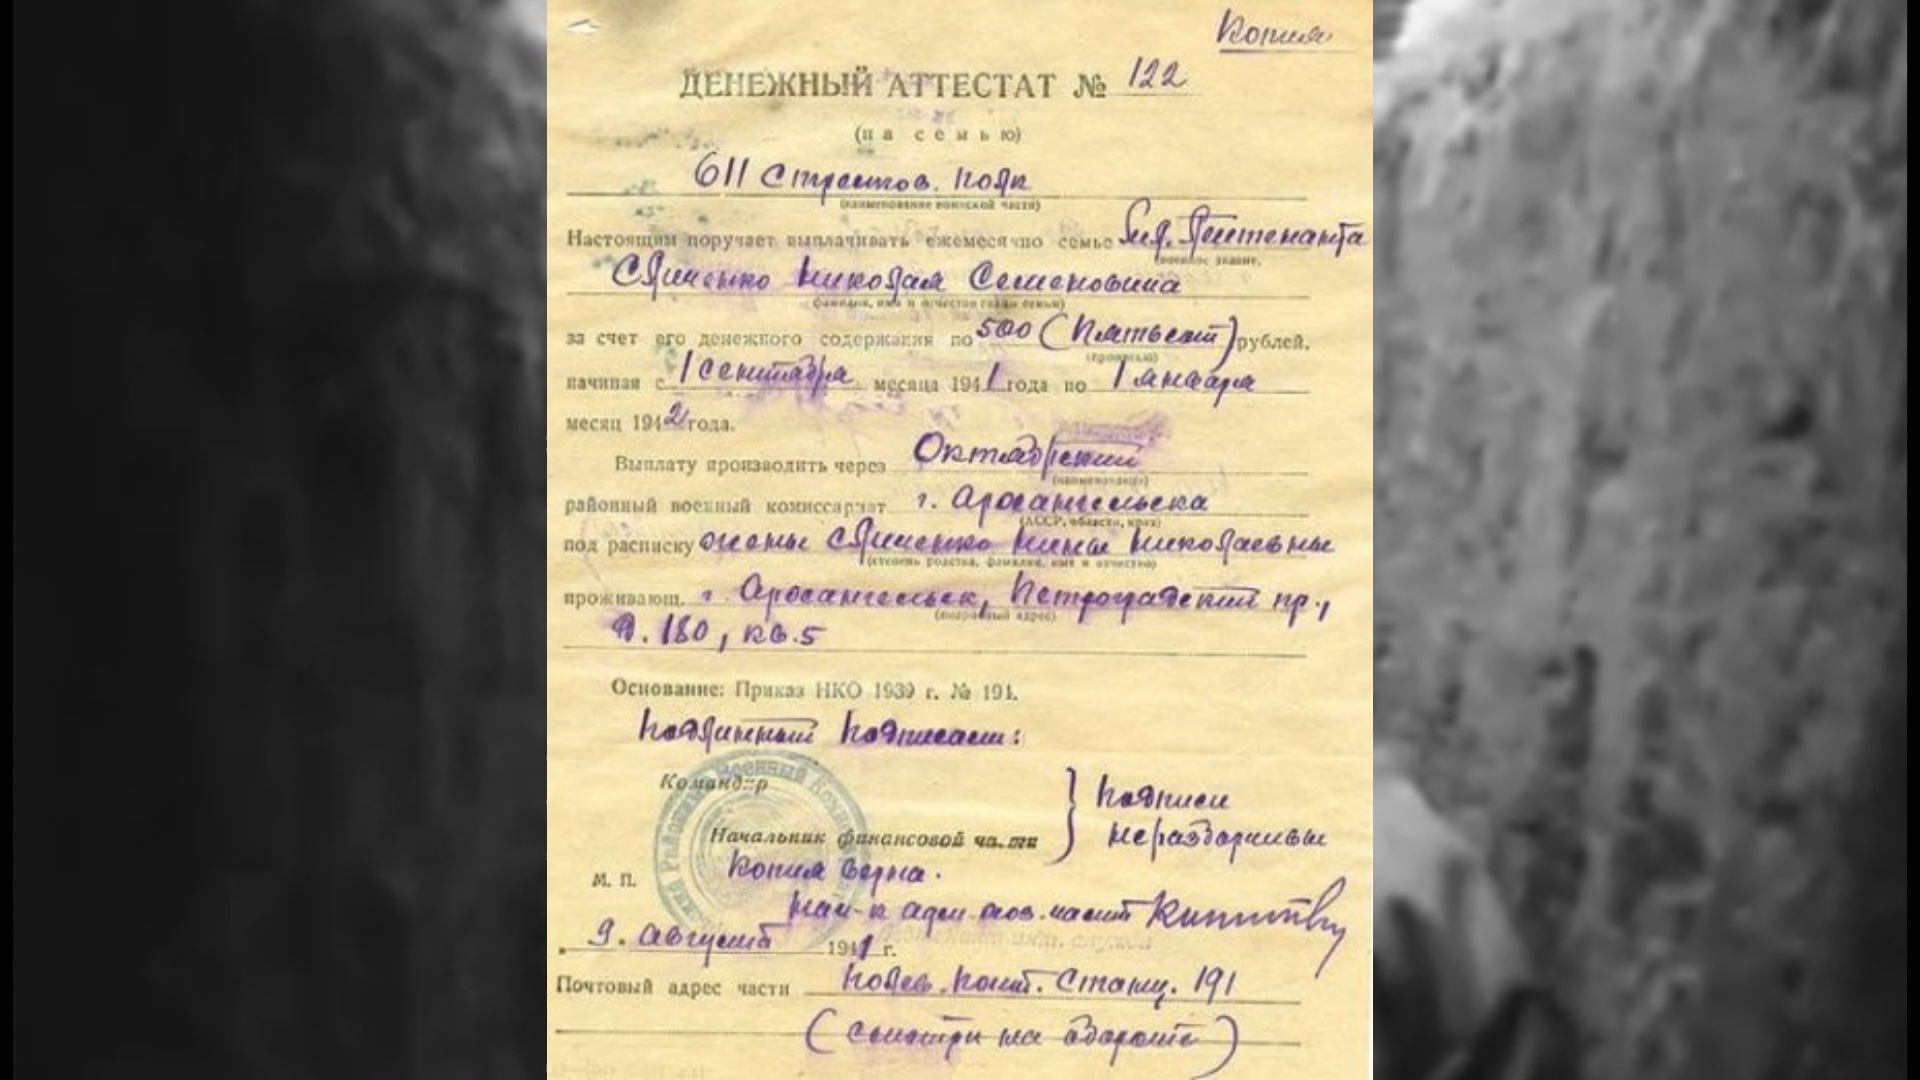 Копия
ДЕНЕЖНЫЙ АТТЕСТАТ № 122
(на семью)
611 Стрелков. полк
(наименование воинской части)
Настоящим поручает выплачивать ежемесячно семье Мл. Лейтенанта
(военное звание,
Николая Семеновича
фамилия, имя и отчество главы семьи)
за счет его денежного содержания по 500 (Пятьсот) рублей,
(прописью)
начиная с 1 сентября месяца 1941 года по 1 января
месяц 1942 года.
Выплату производить через Октябрьский
(наименование)
районный военный комиссариат г. Архангельска
(АССР, область, край)
под расписку жены Нины Николаевны
(степень родства, фамилия, имя и отчество)
проживающ. г. Архангельск, Петроградский пр.,
(подробный адрес)
д. 180, кв. 5
Основание: Приказ НКО 1939 г. № 191.
Подлинный подписали:
Командир
Начальник финансовой части
Подписи
неразборчивы
Районный Военный
М. П.
Копия верна.
Нач-к адм. хоз. части
9. августа 1941 г.
Почтовый адрес части Полев. Почт. Станц. 191
(смотри на обороте)